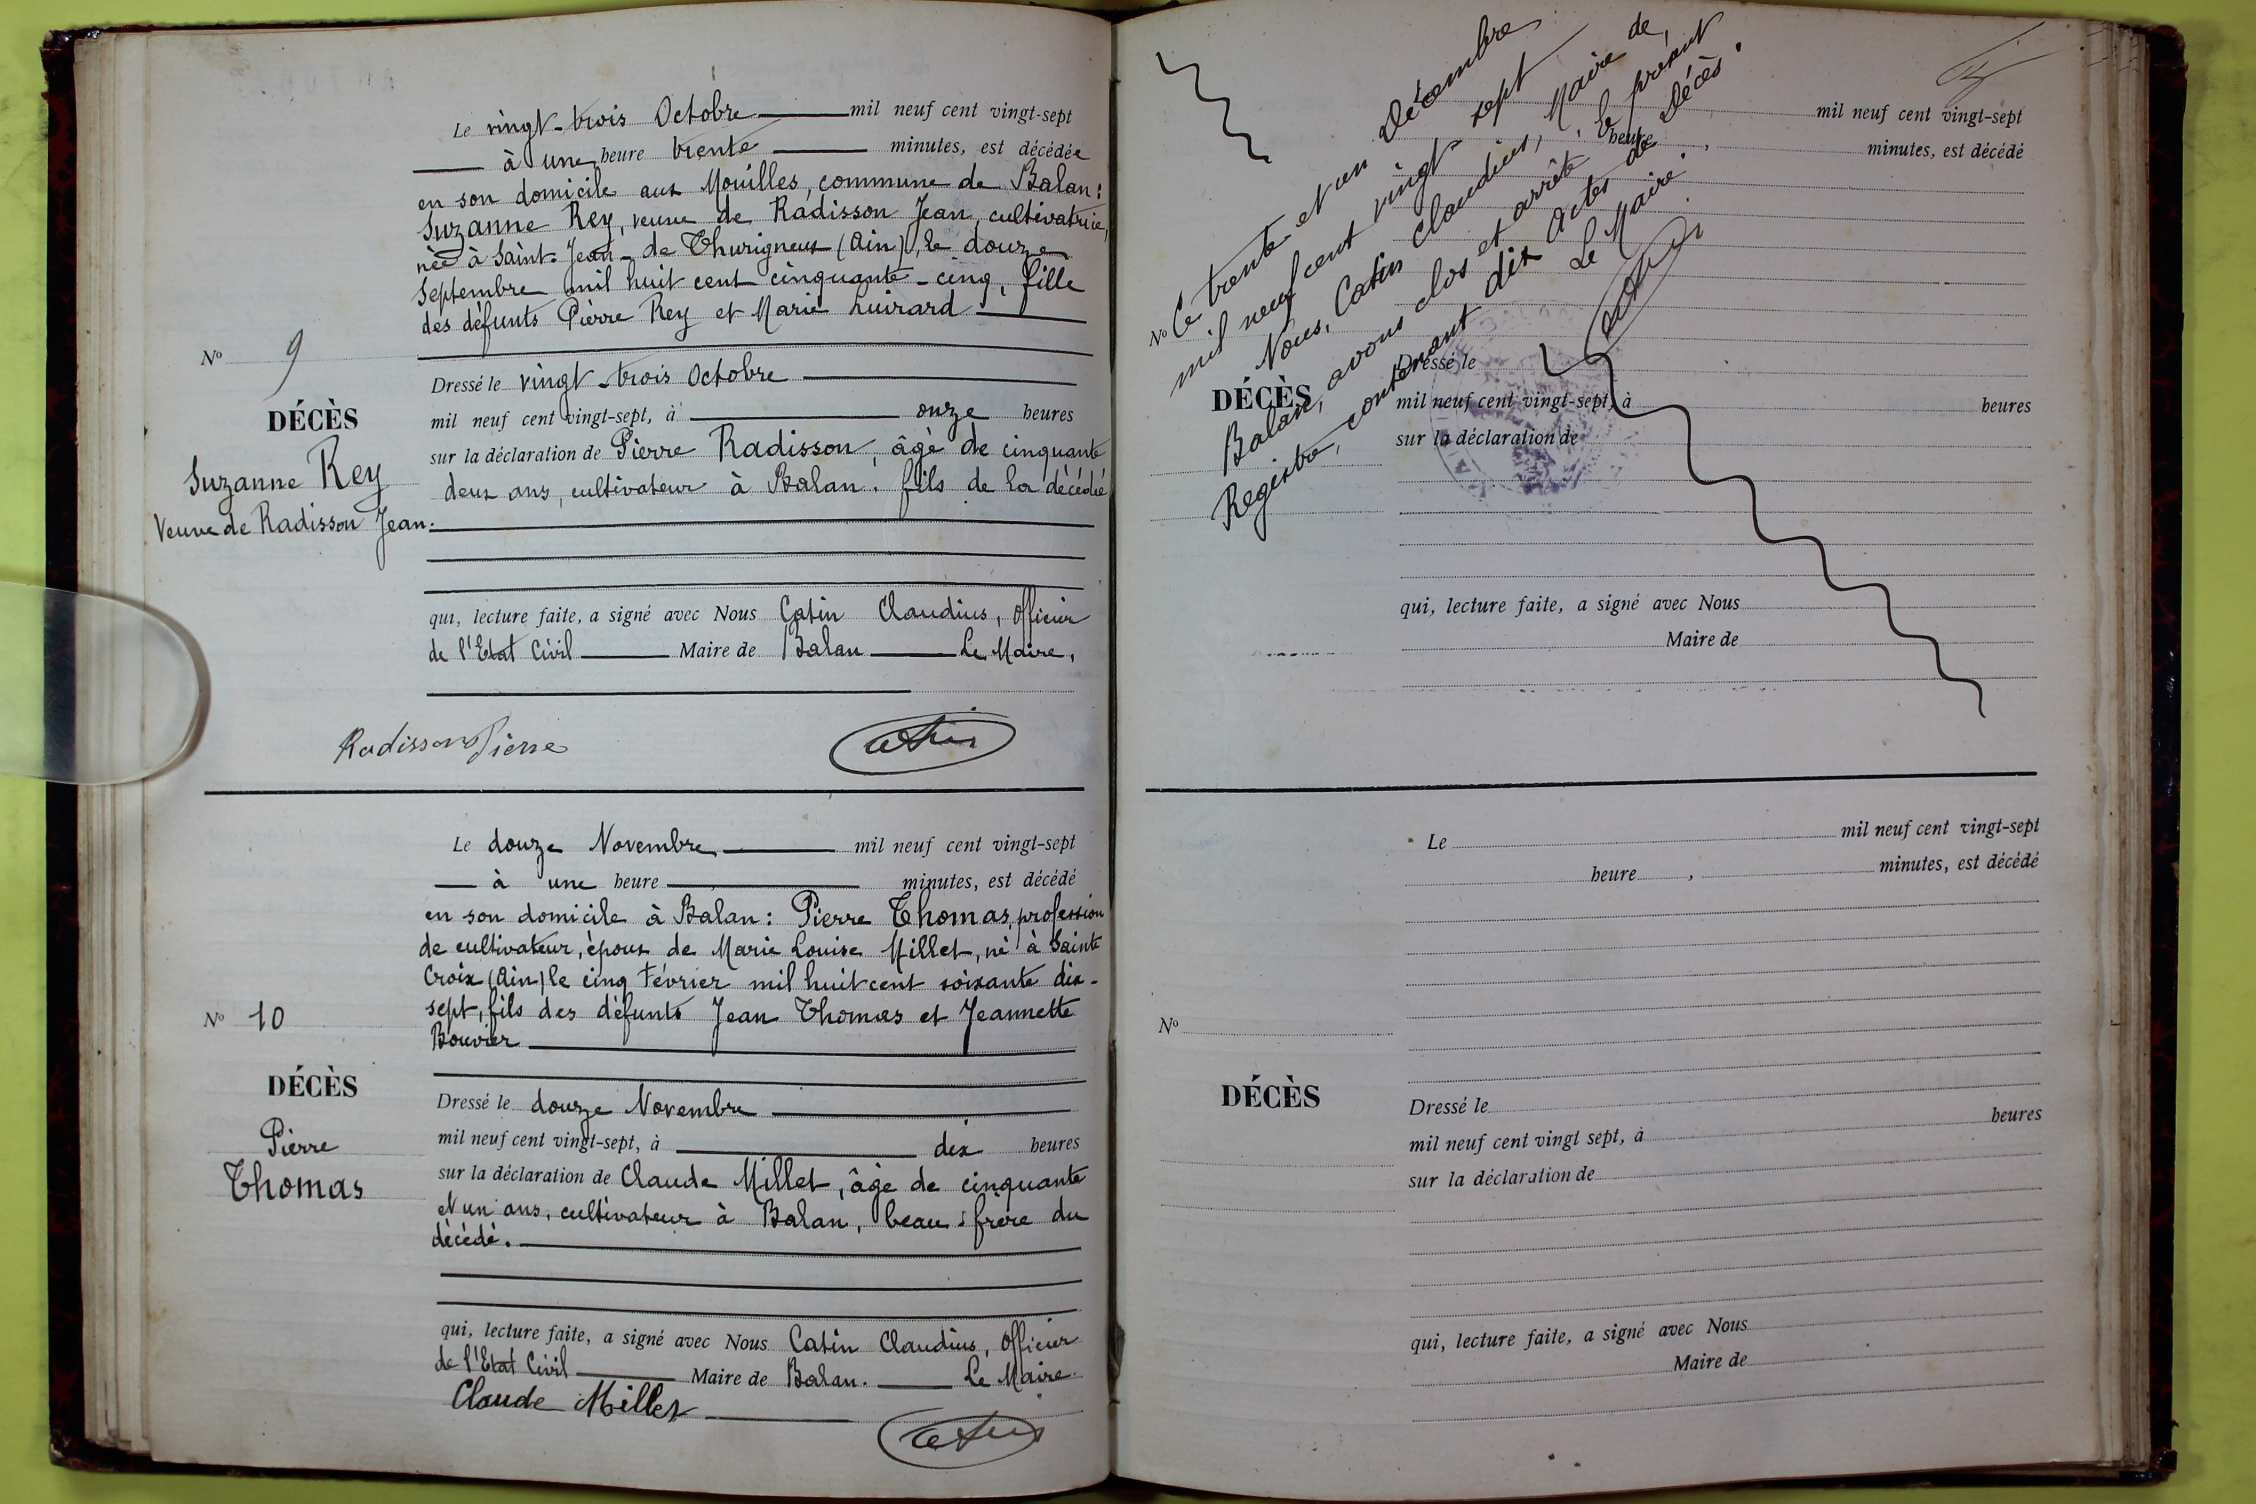 Le vingt-trois Octobre mil neuf cent vingt-sept
à une heure trente minutes, est décédée
en son domicile aux Mouilles, commune de Balan :
Suzanne Rey, veuve de Radisson Jean, cultivatrice,
née à Saint-Jean-de Thurigneux (Ain), le douze
Septembre mil huit cent cinquante-cinq, fille
des défunts Pierre Rey et Marie Luirard
No 9
DÉCÈS
Suzanne Rey
Veuve de Radisson Jean.
Dressé le vingt-trois Octobre
mil neuf cent vingt-sept, à onze heures
sur la déclaration de Pierre Radisson, âgé de cinquante
deux ans, cultivateur à Balan. fils de la décédée
qui, lecture faite, a signé avec Nous Catin Claudius, Officier
de l'Etat Civil Maire de Balan Le Maire,
Radisson Pierre
Catin
Le douze Novembre mil neuf cent vingt-sept
à une heure minutes, est décédé
en son domicile à Balan : Pierre Thomas, profession
de cultivateur, époux de Marie Louise Millet, né à Sainte
Croix (Ain) le cinq Février mil huit cent soixante dix-
sept, fils des défunts Jean Thomas et Jeannette
Bouvier
No 10
DÉCÈS
Pierre
Thomas
Dressé le douze Novembre
mil neuf cent vingt-sept, à dix heures
sur la déclaration de Claude Millet, âgé de cinquante
et un ans, cultivateur à Balan, beau-frère du
décédé.
qui, lecture faite, a signé avec Nous Catin Claudius, Officier
de l'Etat Civil Maire de Balan. Le Maire
Claude Millet
Catin
Ce trente-et un Décembre
mil neuf cent vingt-sept
Nous, Catin Claudius, Maire de
Balan, avons clos et arrêté, le présent
Registre, contenant dix Actes de Décès.
Le Maire.
Catin
mil neuf cent vingt-sept
heure, minutes, est décédé
No
DÉCÈS
Dressé le
mil neuf cent vingt-sept, à heures
sur la déclaration de
qui, lecture faite, a signé avec Nous
Maire de
Le mil neuf cent vingt-sept
heure, minutes, est décédé
No
DÉCÈS
Dressé le
mil neuf cent vingt sept, à heures
sur la déclaration de
qui, lecture faite, a signé avec Nous
Maire de